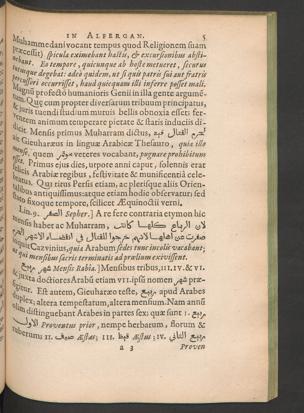 IN ALFERGAN. 5
Muhammedani vocant tempus quod Religionem suam
præcessit) spicula eximebant hastis, & excursionibus absti-
nebant. Eo tempore, quicunque ab hoste metueret, securus
ubicunque degebat: adeò quidem, ut si quis patris sui aut fratris
occurrisset, haud quicquam illi inferre posset mali.
Magnū profectò humanioris Genii in illa gente argumē-
tum. Quæ cum propter diversarum tribuum principatus,
& juris tuendi studium mutuis bellis obnoxia esset: fer-
ventem animum temperare pietate & statis induciis di-
dicit. Mensis primus Muharram dictus,
sic Gieuharæus in linguæ Arabicæ Thesauro, quia illo
mense, quem veteres vocabant, pugnare prohibitum
esset. Primus ejus dies, utpore anni caput, solennis erat
felicis Arabiæ regibus, festivitate & munificentiâ cele-
bratus. Qui ritus Persis etiam, ac plerisque aliis Orien-
talibus antiquissimus: atque etiam hodie observatur; sed
stato fixoque tempore, scilicet Æquinoctii verni.
Lin. 9. الصفر Sepher.] A re fere contraria etymon hic
mensis habet ac Muharram,
inquit Cazvinius, quia Arabum sedes tunc incolis vacabant;
ut qui mensibus sacris terminatis ad prælium exivissent.
شهر ربيع Mensis Rabia.] Mensibus tribus, III. IV. & VI.
& juxta doctiores Arabū etiam VII. ipsū nomen شهر præ-
figitur. Est autem, Gieuharæo teste, ربيع apud Arabes
duplex; altera tempestatum, altera mensium. Nam annū
olim distinguebant Arabes in partes sex: quæ sunt I. ربيع
الاول Proventus prior, nempe herbarum, florum &
tuberum: II. صيف Æstas; III. قيظ Æstus; IV. ربيع الثاني
a 3 Proven